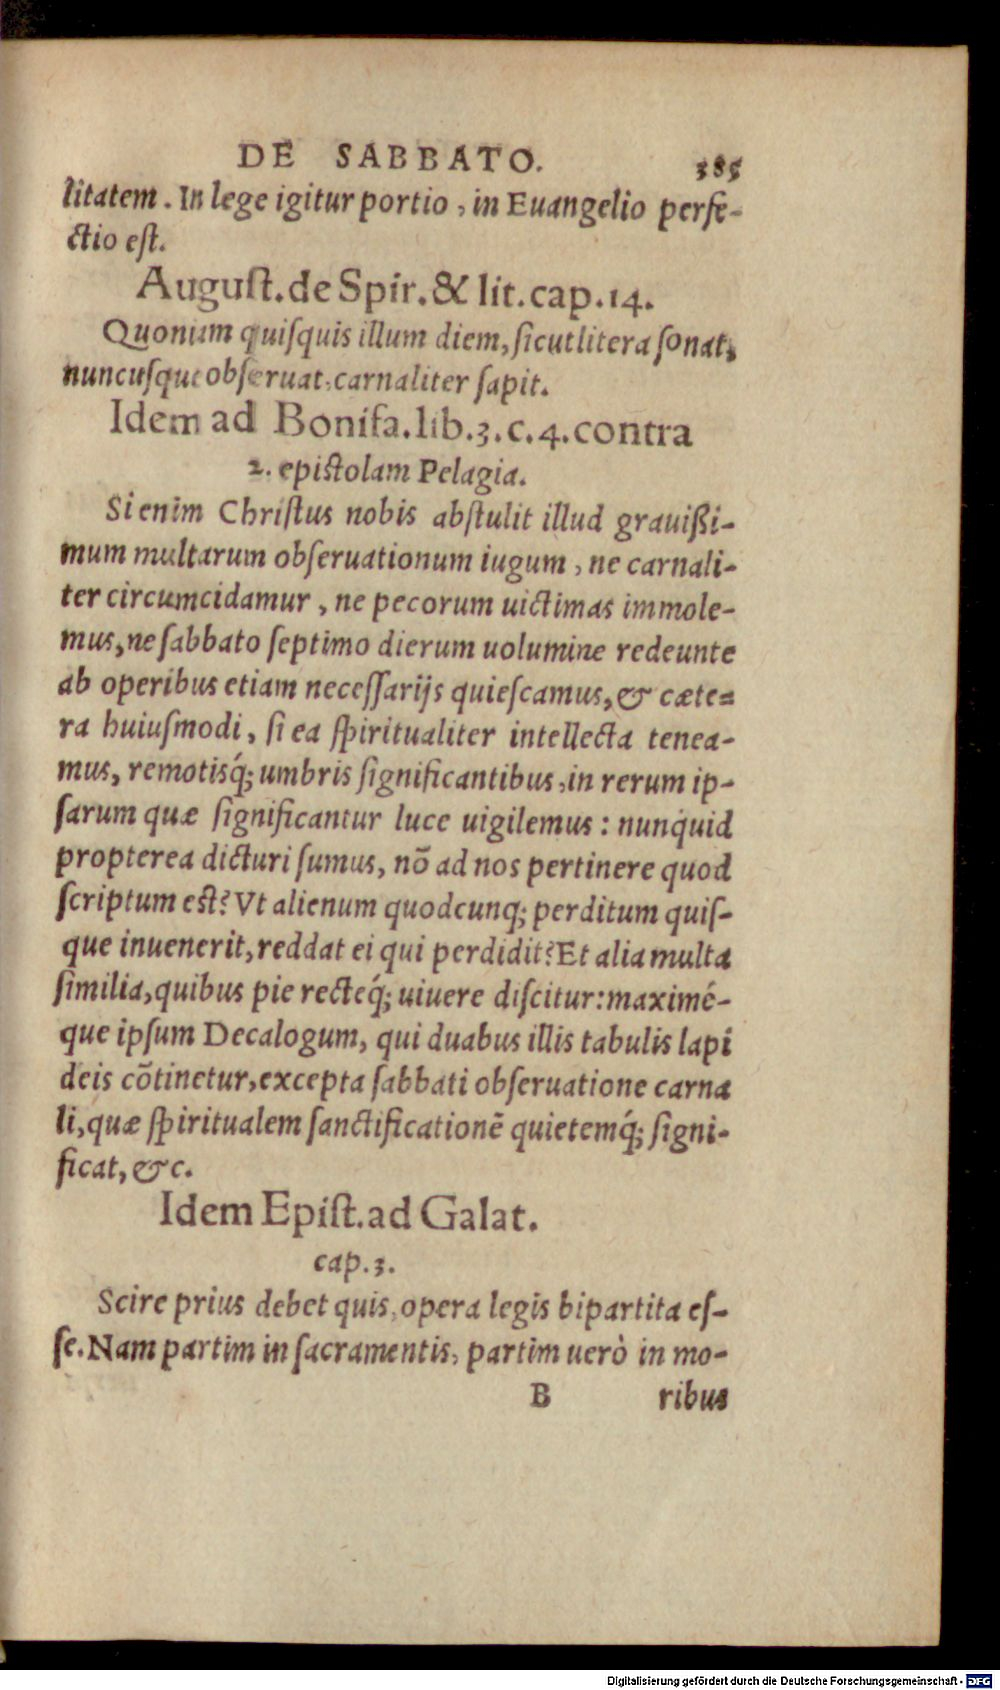 DE SABBATO. 385
litatem. In lege igitur portio, in Euangelio perfe-
ctio est.
August. de Spir. & lit. cap. 14.
Quonium quisquis illum diem, sicut litera sonat,
nuncusque obseruat, carnaliter sapit.
Idem ad Bonifa. lib. 3. c. 4. contra
2. epistolam Pelagia.
Si enim Christus nobis abstulit illud grauißi-
mum multarum obseruationum iugum, ne carnali-
ter circumcidamur, ne pecorum uictimas immole-
mus, ne sabbato septimo dierum uolumine redeunte
ab operibus etiam necessarijs quiescamus, & cæte=
ra huiusmodi, si ea spiritualiter intellecta tenea-
mus, remotisq́; umbris significantibus, in rerum ip-
sarum quæ significantur luce uigilemus: nunquid
propterea dicturi sumus, nō ad nos pertinere quod
scriptum est? Vt alienum quodcunq; perditum quis-
que inuenerit, reddat ei qui perdidit? Et alia multa
similia, quibus pie recteq́; uiuere discitur: maximé-
que ipsum Decalogum, qui duabus illis tabulis lapi
deis cōtinetur, excepta sabbati obseruatione carna
li, quæ spiritualem sanctificationē quietemq́; signi-
ficat, &c.
Idem Epist. ad Galat.
cap. 3.
Scire prius debet quis, opera legis bipartita es-
se. Nam partim in sacramentis, partim uerò in mo-
B ribus
Digitalisierung gefördert durch die Deutsche Forschungsgemeinschaft - DFG